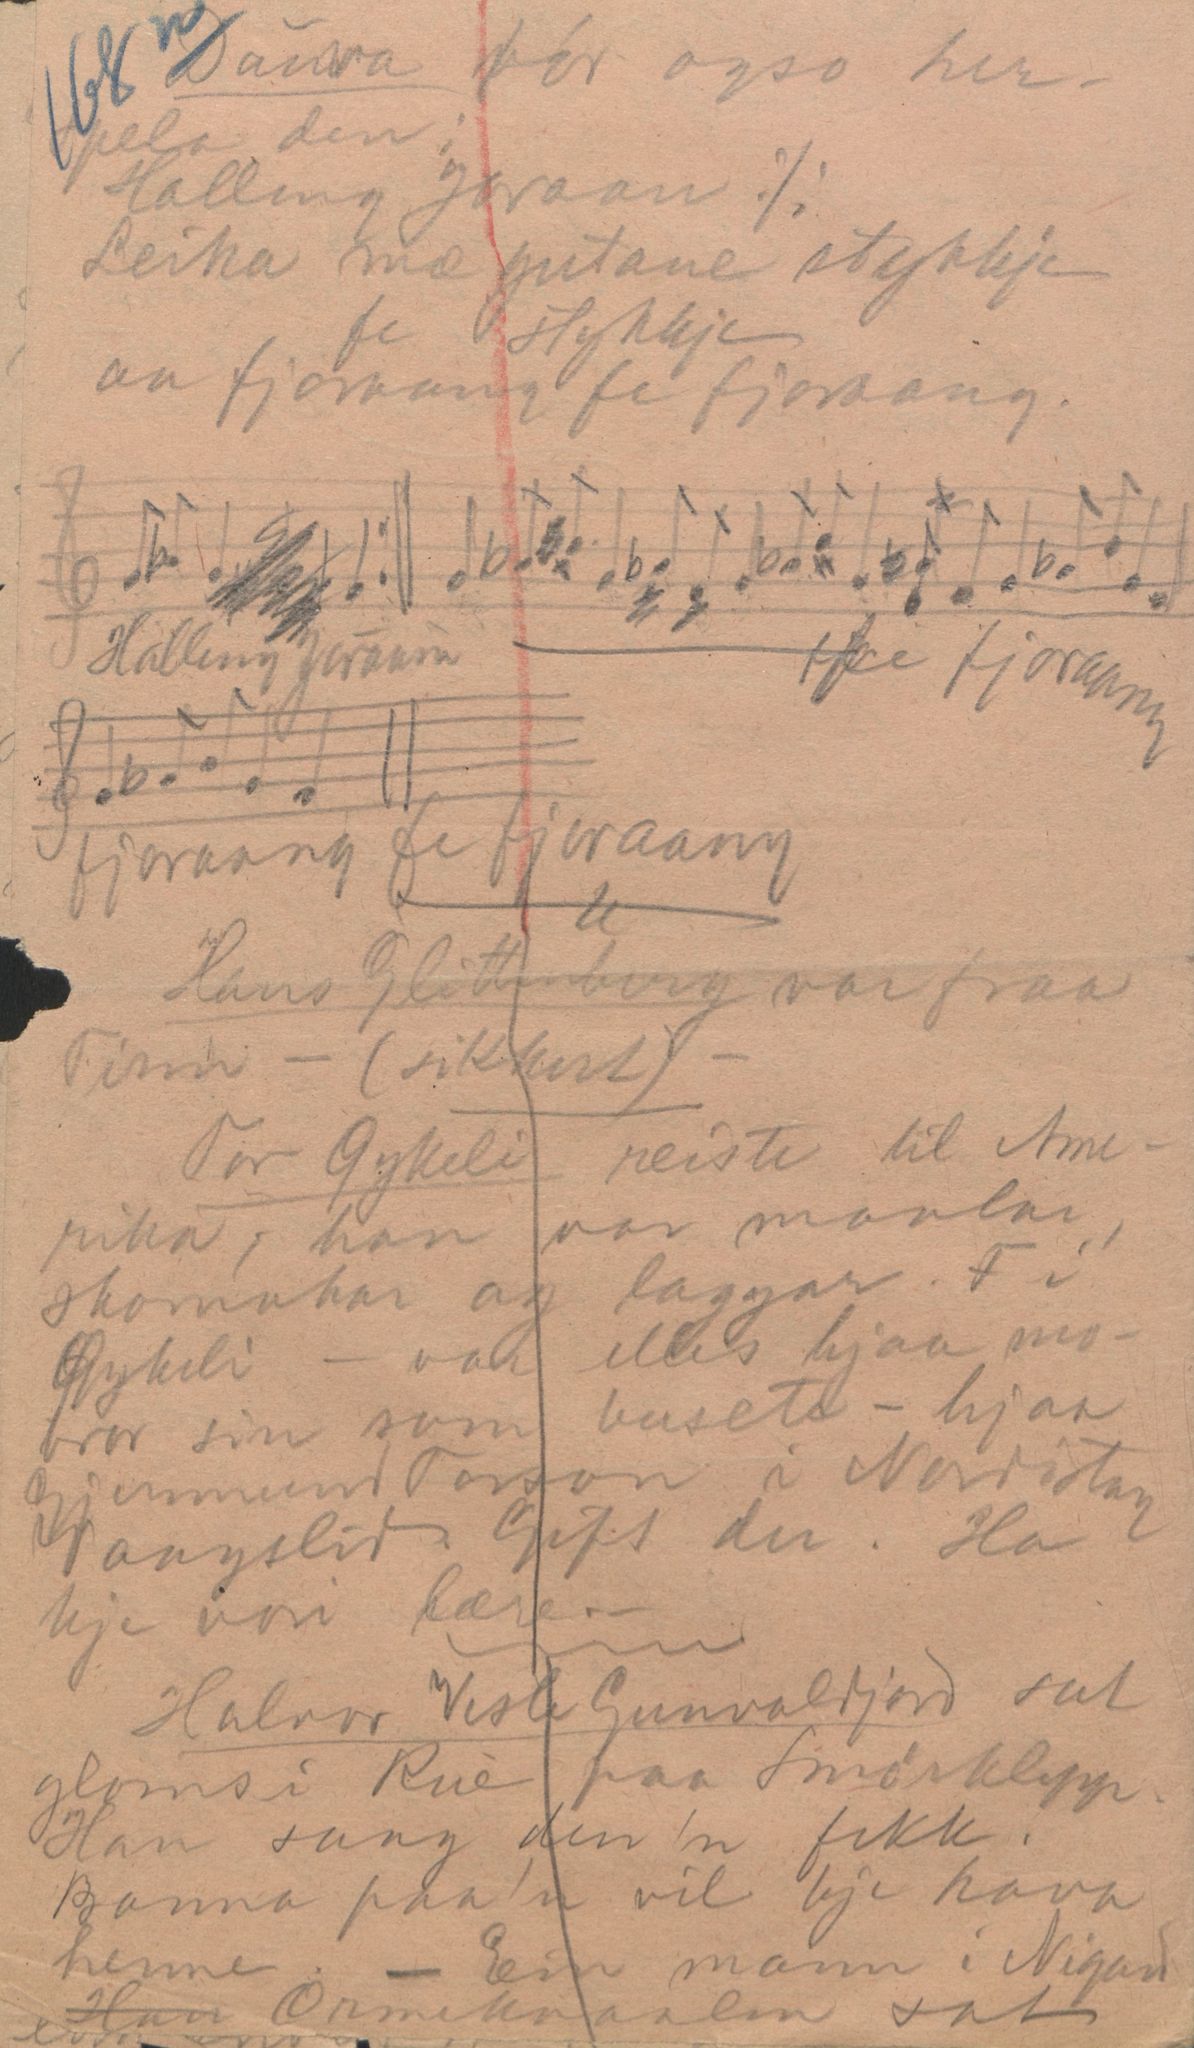 168
Daura bör ogso her-
spela den;
Halling Joraan ./.
Leika mæ gutane stykkje
fe stykkje
aa fjoraang fe fjoraang.
Halling Joraan
fe fjoraang
fjoraang fe fjoraang
Hans Glittenberg var fraa
Tinn - (sikkert) -
Tor Gykeli reiste til Ame-
rika, han var maalar,
skomakar og laggar. F i
Gykeli - var elles hjaa mo-
bror sin som busette - hjaa
Gjermund Torson i Nordistog
Vaagslid. Gift der. Ha
kje vori lære.-
Halvor Vesle Gunvaldjord sat
gloms i Rue paa Smörklepp.
Han sang den 'n fekk.
Banna paa'n vil kje hava
henne. - Ein mann i Nigard
Han Ormekvaalen sat